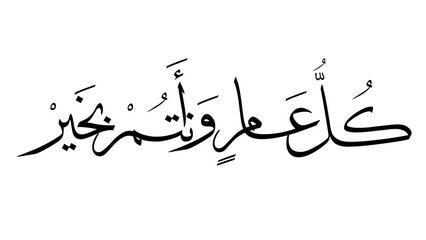 كُلُّ عَامٍ وَأَنتُمْ بِخَيْرْ